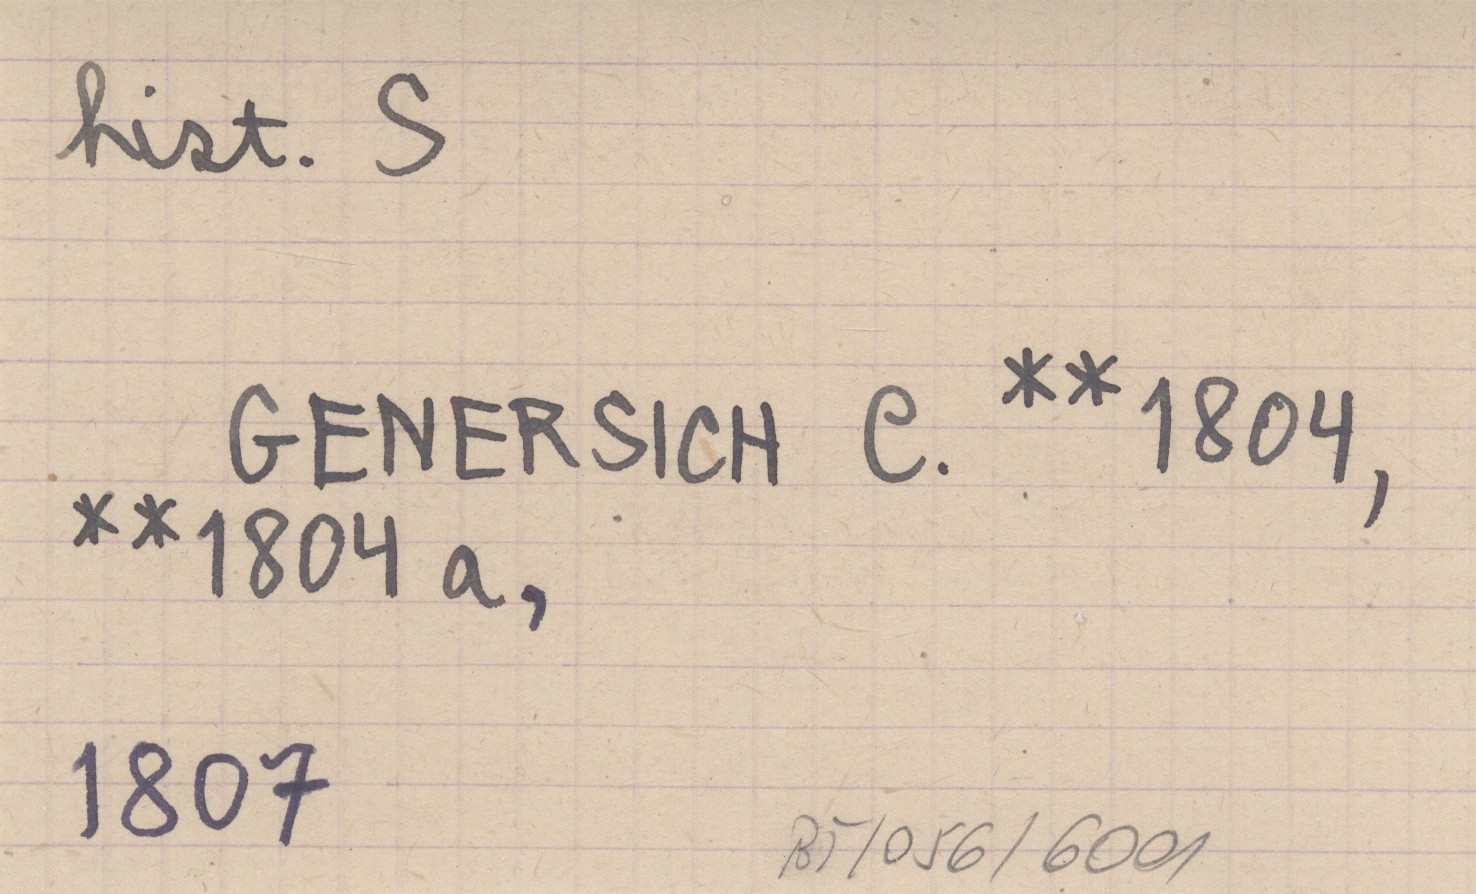 hist. S
GENERSICH C. **1804,
**1804 a,
1807
BT/056/6001